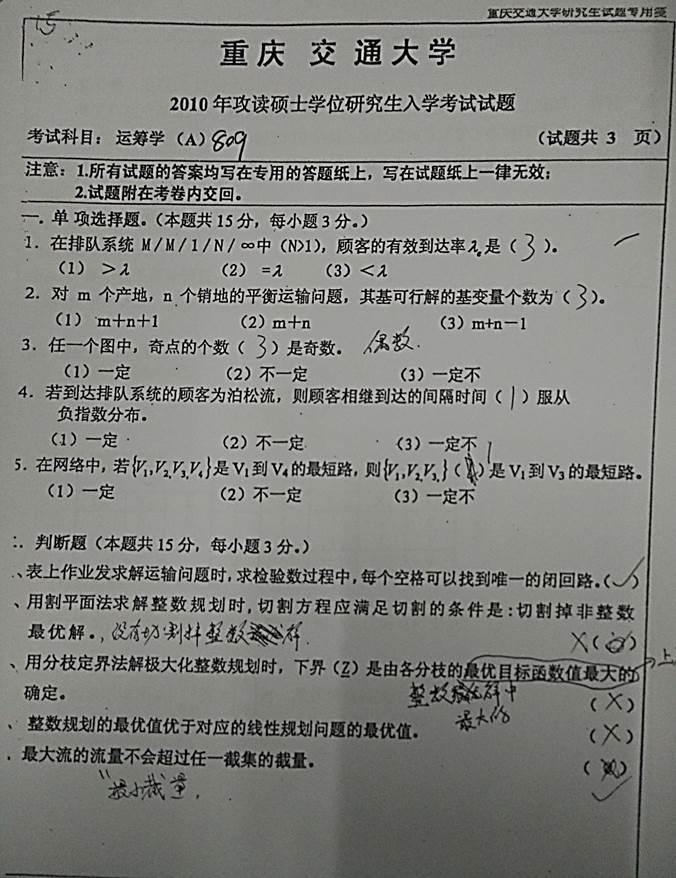 重庆交通大学研究生试题专用笺
15
重庆 交通大学
2010 年攻读硕士学位研究生入学考试试题
考试科目: 运筹学（A）809 （试题共 3 页）
注意：1.所有试题的答案均写在专用的答题纸上，写在试题纸上一律无效；
2.试题附在考卷内交回。
一. 单项选择题。（本题共 15 分，每小题 3 分。）
1. 在排队系统 M/M/1/N/∞中（N>1），顾客的有效到达率λe是（ 3 ）。
（1）＞λ （2）=λ （3）＜λ
2. 对 m 个产地，n 个销地的平衡运输问题，其基可行解的基变量个数为（ 3 ）。
（1） m+n+1 （2）m+n （3）m+n－1
3. 任一个图中，奇点的个数（ 3 ）是奇数。 偶数.
（1）一定 （2）不一定 （3）一定不
4. 若到达排队系统的顾客为泊松流，则顾客相继到达的间隔时间（ 1 ）服从
负指数分布。
（1）一定 （2）不一定 （3）一定不
5. 在网络中，若{V1,V2,V3,V4}是 V1 到 V4 的最短路，则{V1,V2,V3,}（ 1 ）是 V1 到 V3 的最短路。
（1）一定 （2）不一定 （3）一定不
二. 判断题（本题共 15 分，每小题 3 分。）
、表上作业发求解运输问题时，求检验数过程中，每个空格可以找到唯一的闭回路。（✓）
、用割平面法求解整数规划时，切割方程应满足切割的条件是：切割掉非整数
最优解。，没有切割掉整数解. ×（ ）
、用分枝定界法解极大化整数规划时，下界（Z）是由各分枝的最优目标函数值最大的 上
确定。 整数解中 （×）
最大的
、整数规划的最优值优于对应的线性规划问题的最优值。 （×）
. 最大流的流量不会超过任一截集的截量。 （ ）
"最小截量. ✓